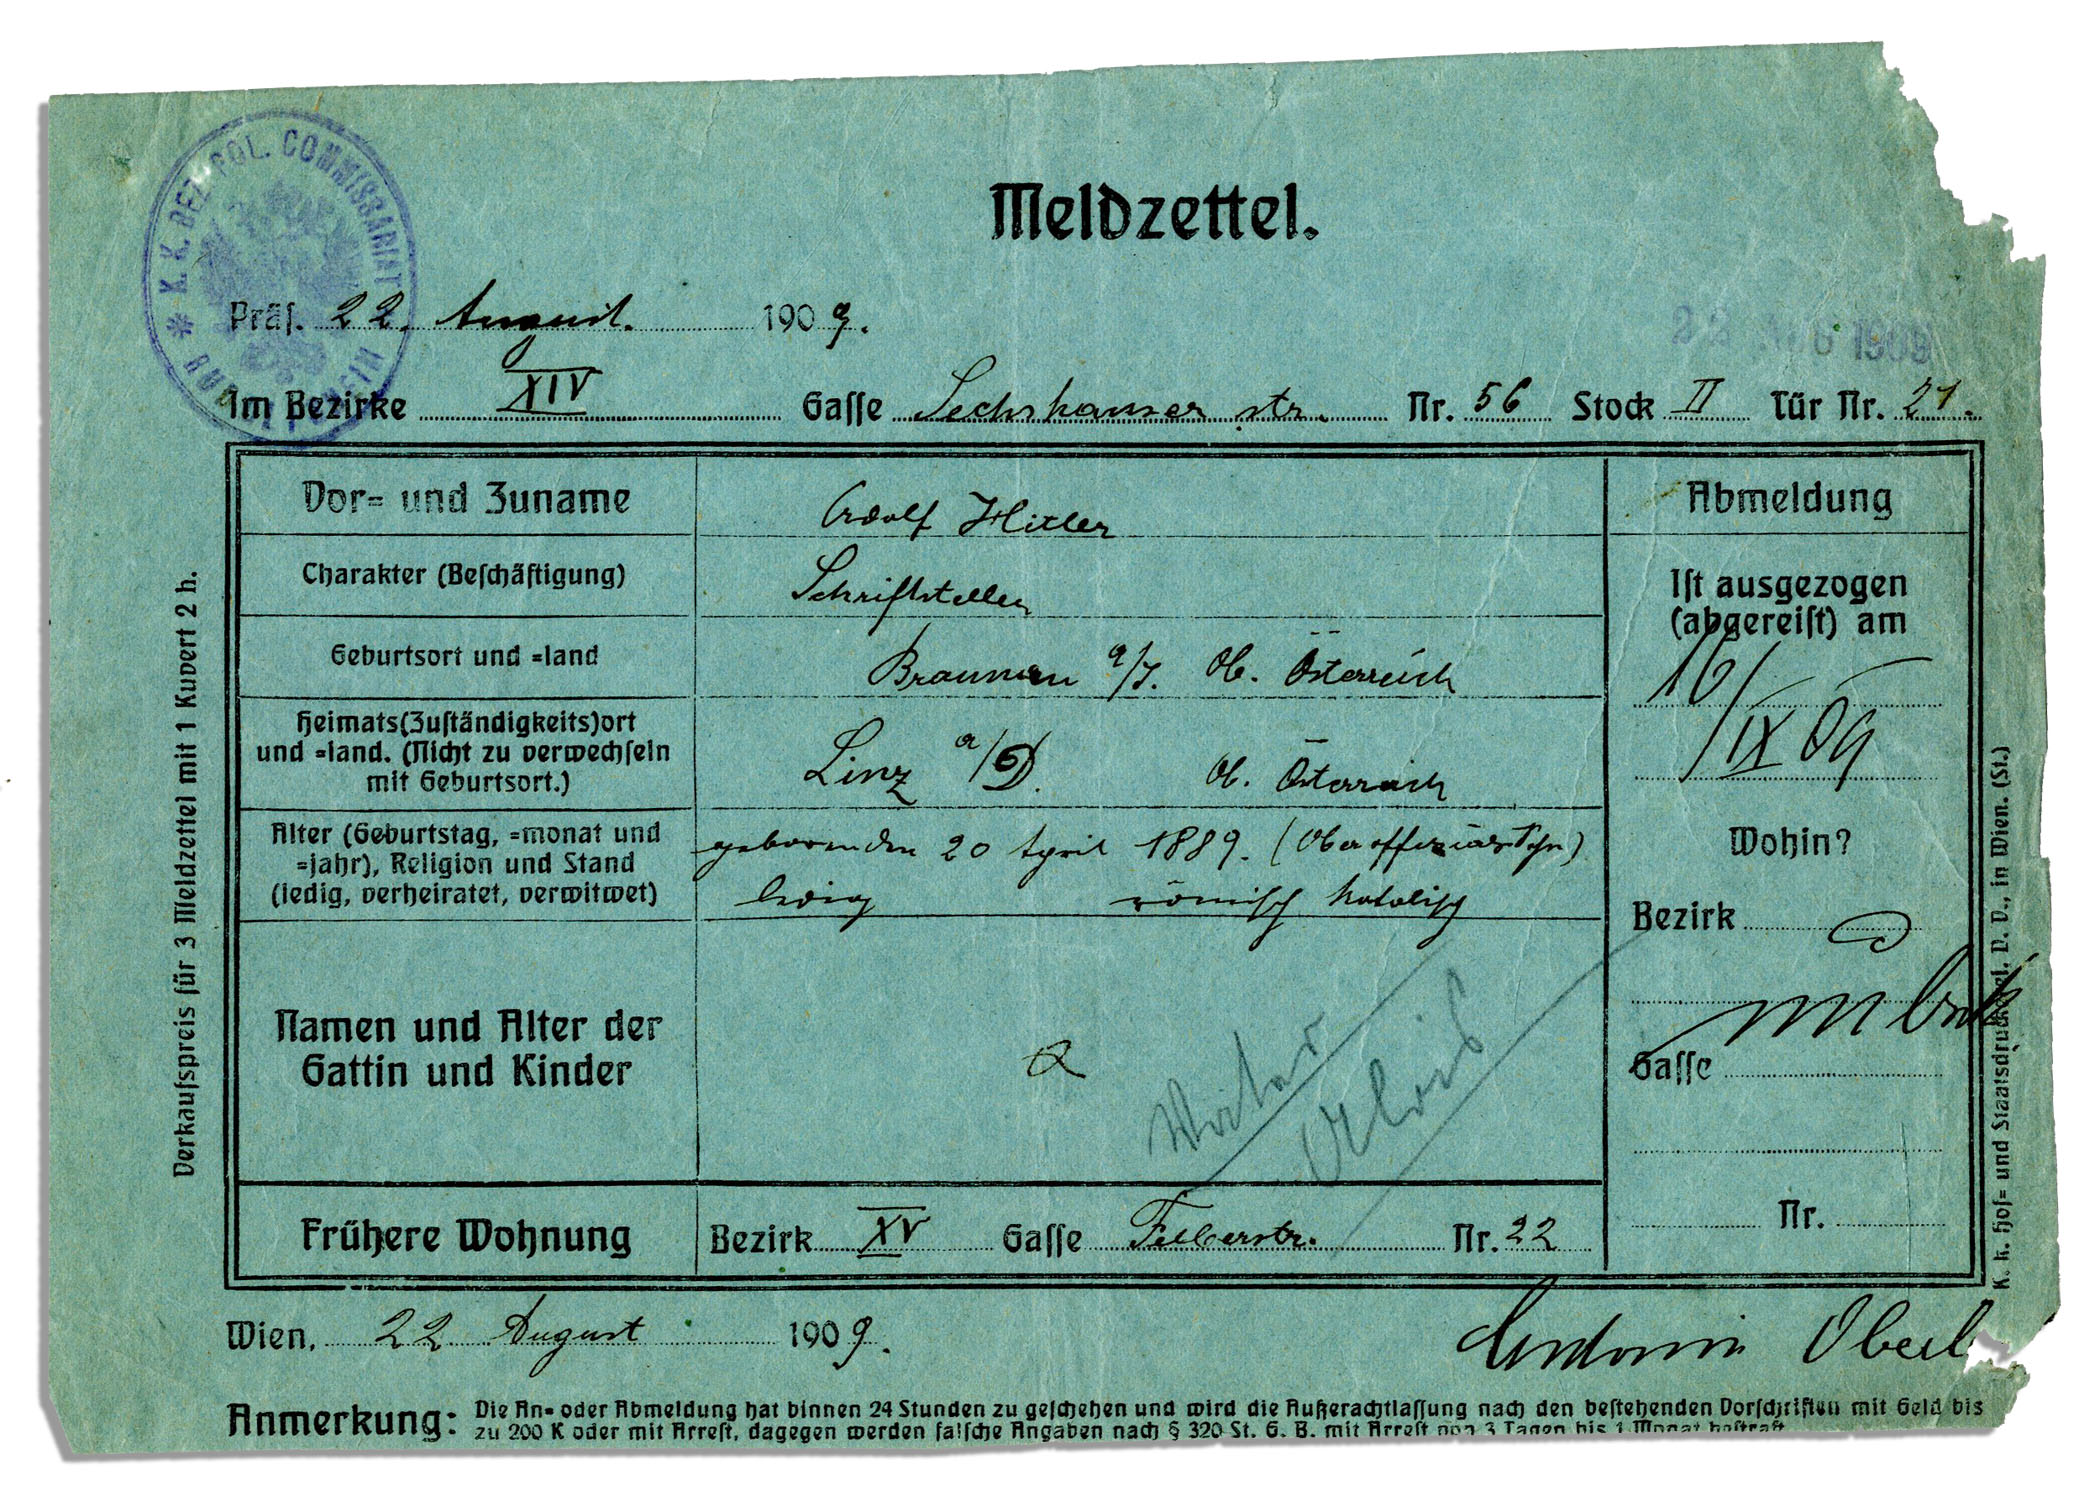 K. K. BEZ. POL. COMMISSARIAT
Meldzettel.
22 AUG 1909
Präs. 22. August. 1909.
Im Bezirke XIV Gasse Sechshauser str. Nr. 56 Stock II Tür Nr. 21.
Vor- und Zuname Adolf Hitler
Charakter (Beschäftigung) Schriftsteller
Geburtsort und -land Braunau a/I. Ob. Österreich
Heimats(Zuständigkeits)ort
und -land. (Nicht zu verwechseln
mit Geburtsort.)
Linz a/D. Ob. Österreich
Alter (Geburtstag, -monat und
-jahr), Religion und Stand
(ledig, verheiratet, verwitwet)
geboren den 20 April 1889.
ledig römisch katolisch
Namen und Alter der
Gattin und Kinder
Vater
Alois
Frühere Wohnung Bezirk XV Gasse Felberstr. Nr. 22
Abmeldung
Ist ausgezogen
(abgereist) am
16/IX 09
Wohin?
Bezirk
Gasse
Nr.
Wien, 22 August 1909.
Antonia Oberl
Anmerkung: Die An- oder Abmeldung hat binnen 24 Stunden zu geschehen und wird die Außerachtlassung nach den bestehenden Vorschriften mit Geld bis
zu 200 K oder mit Arrest, dagegen werden falsche Angaben nach § 320 St. G. B. mit Arrest von 3 Tagen bis 1 Monat bestraft
Verkaufspreis für 3 Meldzettel mit 1 Kuvert 2 h.
K. k. Hof- und Staatsdruckerei, V. V., in Wien. (St.)